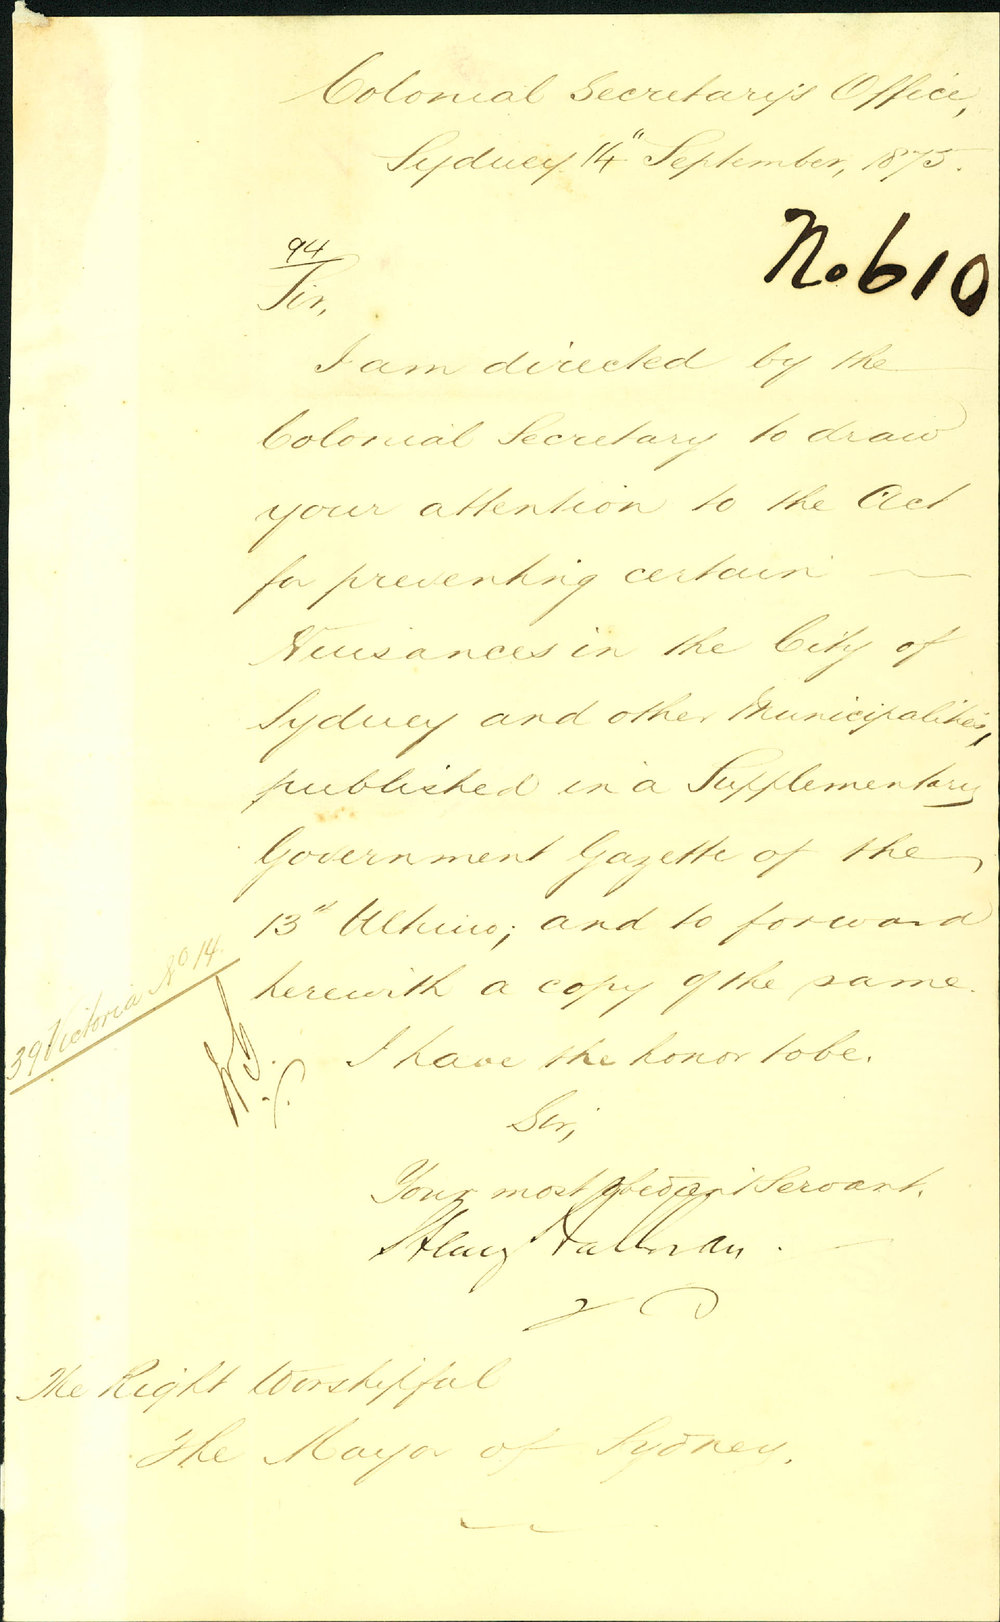 Colonial Secretary's Office,
Sydney 14" September, 1875.
No 610
94
Sir,
I am directed by the
Colonial Secretary to draw
your attention to the Act
for preventing certain
Nuisances in the City of
Sydney and other Municipalities,
published in a Supplementary
Government Gazette of the
13" Ultimo; and to forward
herewith a copy of the same.
39 Victoria No 14
I have the honor to be,
Sir,
Your most obedient Servant,
Henry Halloran
The Right Worshipful
The Mayor of Sydney.